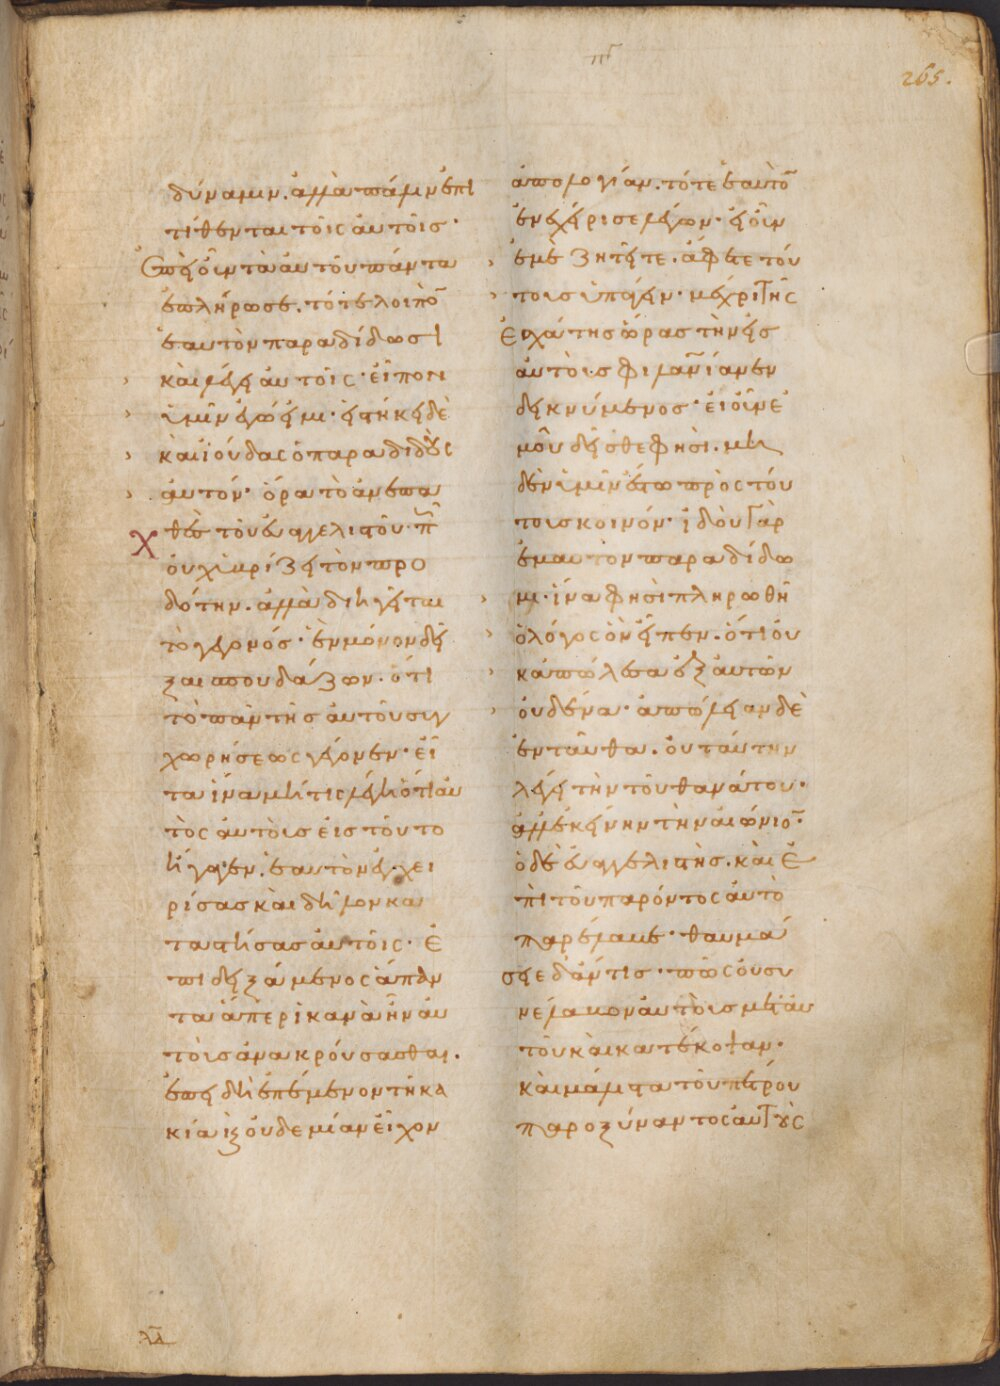 265.
δύναμιν. ἀλλὰ πάλιν ἐπι
τίθενται τοῖς αὐτοῖς.
Ἐπεὶ οὖν τὰ αὐτοῦ πάντα
ἐπλήρωσε. τότε λοιπὸ̅
ἑαυτὸν παραδίδωσι
καὶ λέγει αὐτοῖς. εἶπον
ὑμῖν ἐγώ εἰμι. εἱστήκει δὲ
καὶ ἰούδας ὁ παραδιδοὺς
αὐτόν. ὅρα τὸ ἀνεπα
χθὲς τοῦ εὐαγγελιστοῦ. π̅
οὐχ ὑβρίζει τὸν προ
δότην. ἀλλὰ διηγεῖται
τὸ γεγονός. ἓν μόνον δεῖ
ξαι σπουδάζων. ὅτι
τὸ πᾶν τῆς αὐτοῦ συγ
χωρήσεως γέγονεν. εἶ
τα ἵνα μή τις λέγῃ ὅτι αὐ
τὸς αὐτοὺς εἰς τοῦτο
ἤγαγεν. ἑαυτὸν ἐγχει
ρίσας καὶ δῆλον κα
ταστήσας αὐτοῖς. Ἐ
πιδειξάμενος ἅπαν
τα ἅπερ ἱκανὰ ἦν αὐ
τοὺς ἀνακρούσασθαι.
ἐπειδὴ ἐπέμενον τῆ κα
κία καὶ οὐδεμίαν εἶχον
ἀπολογίαν. τότε ἑαυτὸ̅
ἐνεχείρισε λέγων. εἰ οὖν
ἐμὲ ζητεῖτε. ἄφετε τού
τους ὑπάγειν. μέχρι τῆς
Ἐσχάτης ὥρας τὴν εἰς
αὐτοὺς φιλαν̅ίαν ἐν
δεικνύμενος. εἰ οὖν ἐ
μοῦ δεῖσθε φησὶ. μη
δὲν ὑμῖν ἔστω πρὸς τού
τους κοινόν. ἰδοὺ γὰρ
ἐμαυτὸν παραδίδω
μι. ἵνα φησὶ πληρωθῆ
ὁ λόγος ὃν εἶπεν. ὅτι οὐ
κ ἀπώλεσα ἐξ αὐτῶν
οὐδένα. ἀπώλειαν δὲ
ἐνταῦθα. οὐ ταύτην
λέγει τὴν τοῦ θανάτου.
ἀλλ' ἐκείνην τὴν αἰώνιο̅.
ὁ δὲ εὐαγγελιστὴς. καὶ Ἐ
πὶ τοῦ παρόντος αὐτὸ
παρέλαβε. θαυμά
σειε δ' ἄν τις. πῶς οὐ συ
νέλαβον αὐτοὺς μετ' αὐ
τοῦ καὶ κατέκοψαν.
καὶ μάλιστα τοῦ πέτρου
παροξύναντος αὐτοὺς